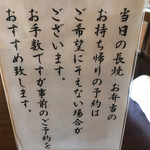 当日の長焼 お弁当の
お持ち帰りの予約は
ご希望にそえない場合が
ございます。
お手数ですが事前のご予約を
おすすめ致します。